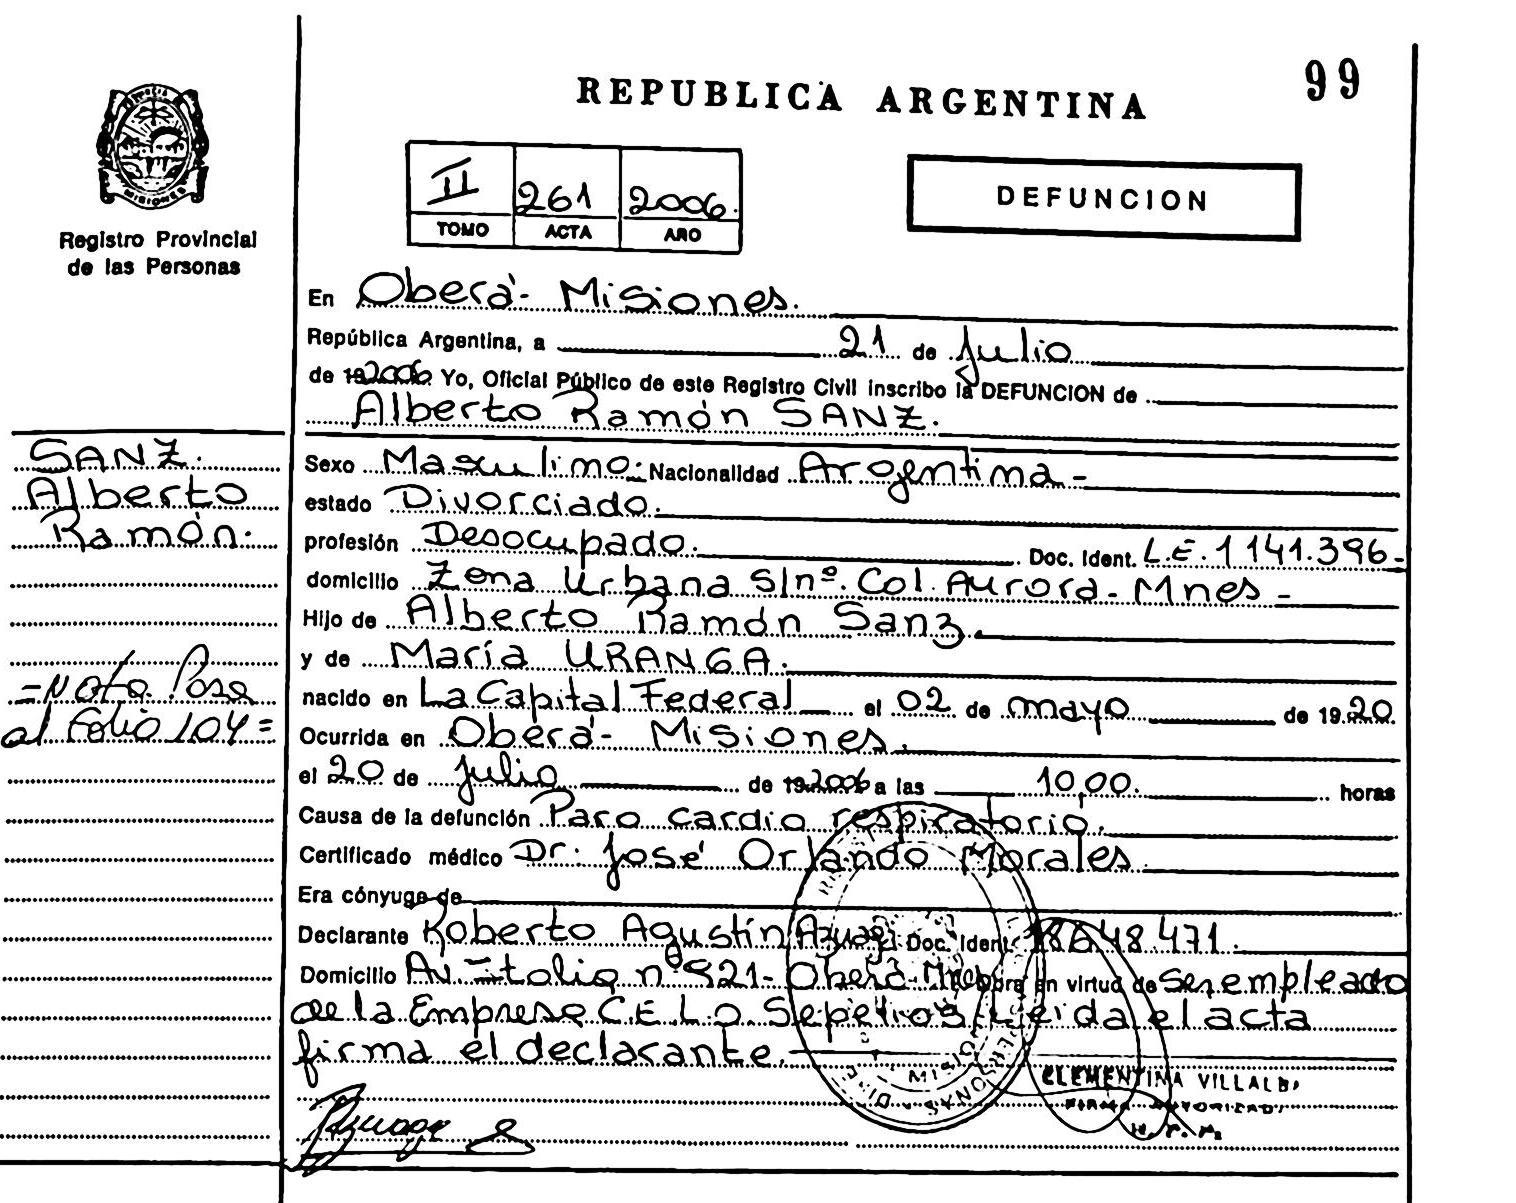 99
REPUBLICA ARGENTINA
MISIONES
Registro Provincial
de las Personas
II 261 2006.
TOMO ACTA AÑO
DEFUNCION
En Oberá- Misiones.
República Argentina, a 21 de Julio
de 192006 Yo, Oficial Público de este Registro Civil inscribo la DEFUNCION de
Alberto Ramón SANZ.
SANZ.
Alberto
Ramón.
=Nota Pasa
al Folio 104=
Sexo Masculino. Nacionalidad Argentina-
estado Divorciado.
profesión Desocupado. Doc. Ident. L.E. 1141.396-
domicilio Zona Urbana S/nº. Col. Aurora- Mnes-
Hijo de Alberto Ramón Sanz.
y de María URANGA.
nacido en La Capital Federal el 02 de mayo de 1920.
Ocurrida en Oberá- Misiones.
el 20 de Julio de 192006 a las 10,00. horas
Causa de la defunción Paro cardio respiratorio.
Certificado médico Dr. José Orlando Morales
Era cónyuge de
Declarante Roberto Agustín Azuaga Doc. Ident. 648.471.
Domicilio Av. Italia nº 921- Oberá- Mnes Obra en virtud de Ser empleado
de la Empresa C.E.L.O. Sepelios, Leída el acta
firma el declarante.
CLEMENTINA VILLALBA
FIRMA AUTORIZADA
R. P. P.